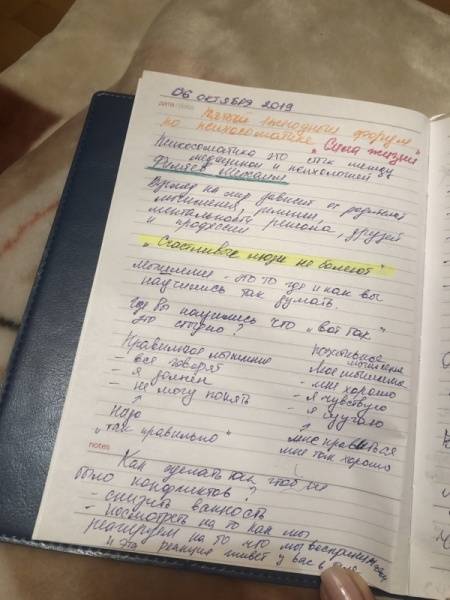 06 октября 2019
DATE
ежегодный форум
по психосоматике "Сила жизни"
Психосоматика это стык между
медициной и психологией
Взгляд на мир зависит от родителей
мышления, религии
ментальность региона, друзей
и профессии
"Счастливые люди не болеют"
Мышление - это то где и как вы
научились так думать.
Где вы научились что "вот так"
это стыдно?
Правильное мышление
- все говорят
- я должен
- не могу понять
Надо
"так правильно"
позитивное
мышление
Моё мышление
- мне хорошо
- я чувствую
- я изучаю
мне нравиться
мне так хорошо
notes
Как сделать так чтоб не
было конфликтов?
- снизить важность
- посмотреть на то как мы
реагируем на то что мы воспринимаем
и эта реакция живёт у вас в